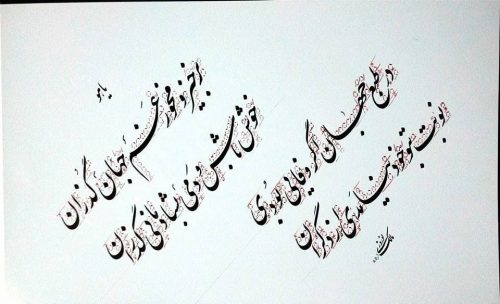 یا هو
برخیز و مخور غم جهان گذران
خوش باش و دمی بشادمانی گذران
در طبع جهان اگر وفایی بودی
نوبت بتو خود نیامدی از دگران